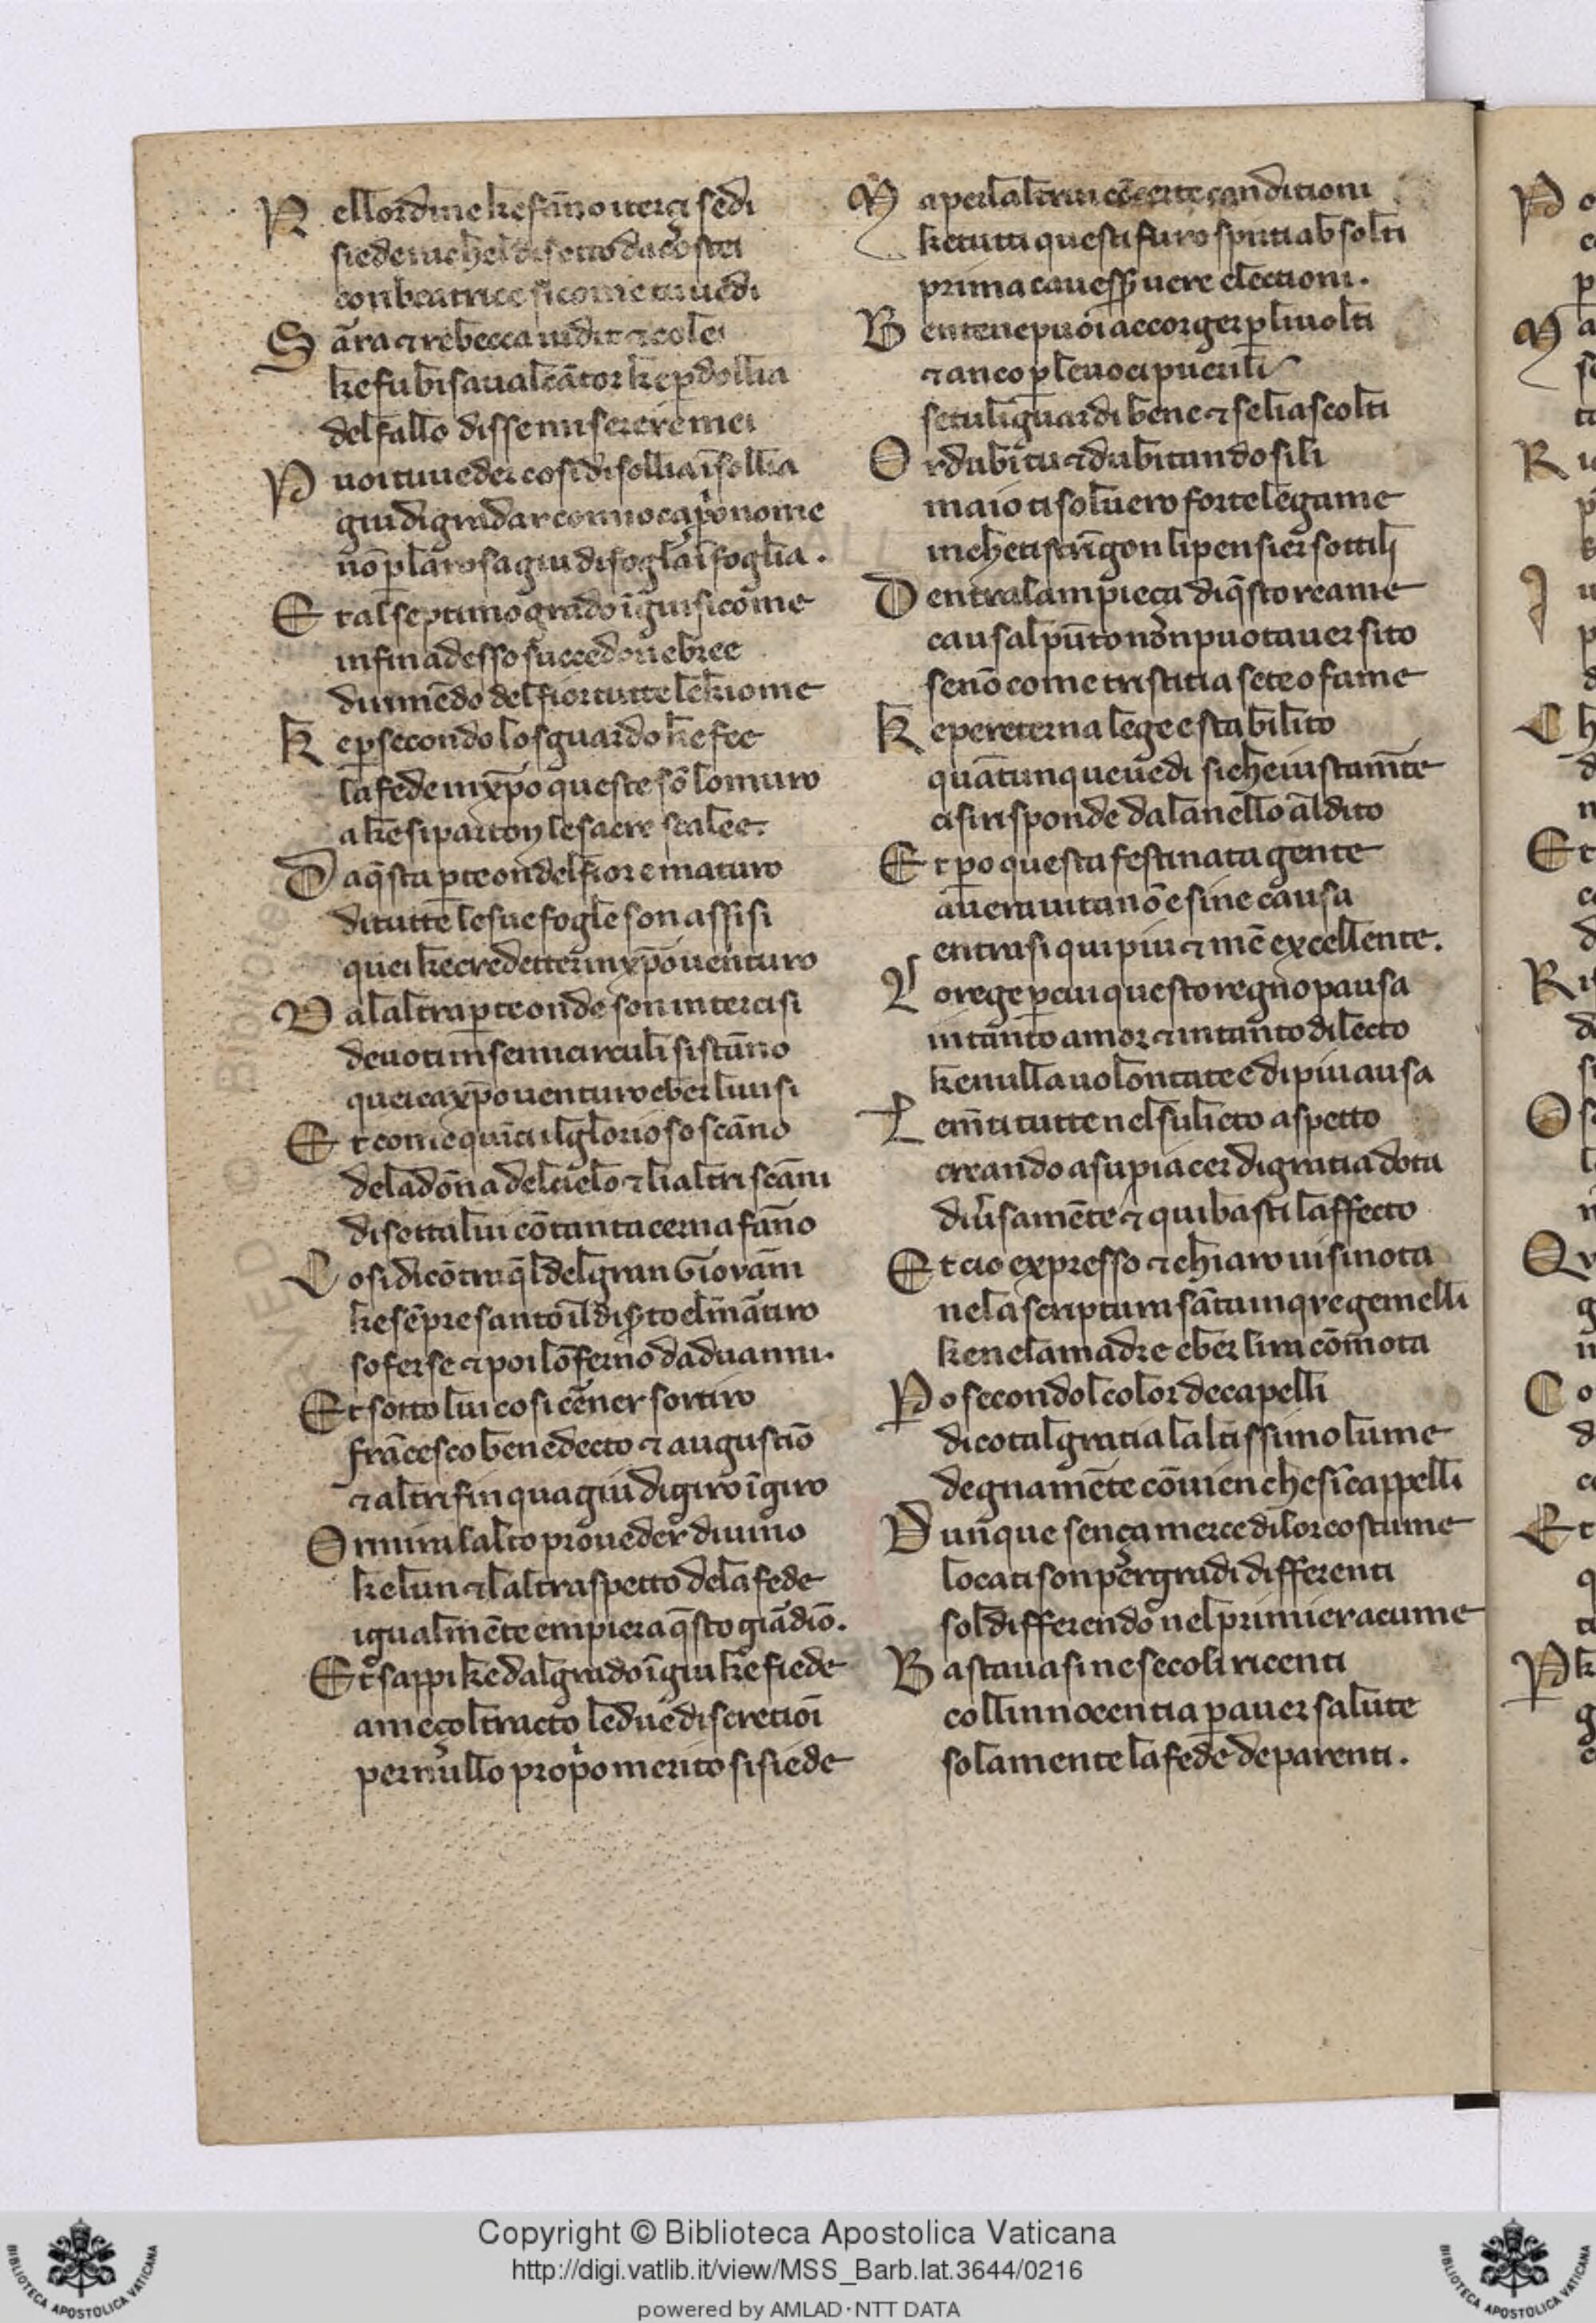 N ellordine ke fāno iterçi sedi
siede rachel di socto da costei
con beatrice si come tu vedi
S āra ⁊ rebecca iudit ⁊ colei
ke fu bisava al cātor ke ꝑ dollia
del fallo disse miserere mei
P uoi tu veder cosi di sollia ī sollia
giu digradar com io ca pͥo nome
vo ꝑ la rosa giu di foglia ī foglia.
E t al septimo grado īgiu si come
infin ad esso succedono ebree
dirimēdo del fior tutte le kiome
K e ꝑ secondo lo sguardo ke fee
la fede in xp̄o queste sō lo muro
a ke si parton le sacre scalee.
D a q̄sta ꝑte on del fior e maturo
di tutte le sue foglie son assisi
quei ke credetter in xp̄o venturo
D al altra ꝑte onde son intercisi
de voti in semicirculi si stāno
quei ca xp̄o venturo ebber li visi
E t come quīci il glorioso scāno
de la dōna del cielo ⁊ li altri scāni
di sotta lui cōtanta cerna fāno
C osi di cōtra q̄l del gran Giovāni
ke sēpre santo il disͥto el martiro
soferse ⁊ poi lo īferno da du anni.
E t sotto lui cosi cēner sortiro
frācesco benedecto ⁊ augustīo
⁊ altri fin qua giu di giro ī giro
O r mira lalto proveder divino
ke lun ⁊ laltraspetto de la fede
igualmēte empiera q̄sto giardīo.
E t sappi ke dal grado īgiu ke fiede
a meço l tracto le due discretioī
per nullo propͥo merito si siede
M a per laltrui cō certe conditioni
ke tutti questi furo spiriti absolti
prima cavesser vere electioni.
B en te ne puoi accorger ꝑ li volti
⁊ anco ꝑ le voci puerili
se tu li guardi bene ⁊ se li ascolti
O r dubi tu ⁊ dubitando sili
ma io ti solvero forte legame
in che ti strīgon li pensier sottili
D entra lampieça di q̄sto reame
causal pūto non puot aver sito
se nō come tristitia sete o fame
K e per eterna lege e stabilito
quātunque vedi si che iustam̄te
ci si risponde da lanello al dito
E t ꝑo questa festinata gente
a vera vita nō e sine causa
entrasi qui piu ⁊ mē excellente.
L o rege ꝑ cui questo regno pausa
in tanto amor ⁊ in tanto dilecto
ke nulla volontate e di piu ausa
L e m̄ti tutte nel su lieto aspetto
creando a su piacer di gratia dota
div̓samēte ⁊ qui basti laffecto
E t cio expresso ⁊ chiaro vi si nota
ne la scriptura sāta in q̄ gemelli
ke ne la madre ebber lira cōmota
P o secondo l color de capelli
di cotal gratia laltissimo lume
degnamēte cōvien che sīcappelli
D unque sença merce di lor costume
locati son per gradi differenti
sol differendo nel primier acume
B astavasi ne secoli ricenti
coll innocentia ꝑ aver salute
solamente la fede de parenti.
Copyright © Biblioteca Apostolica Vaticana
http://digi.vatlib.it/view/MSS_Barb.lat.3644/0216
powered by AMLAD·NTT DATA